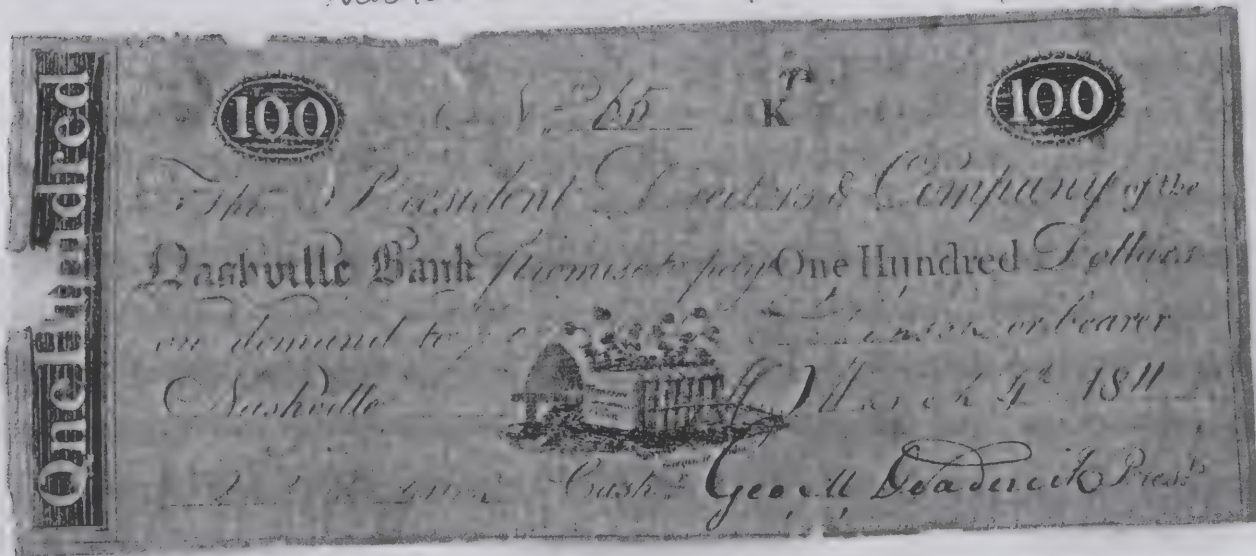 One Hundred
100 No 65 K 100
The President Directors & Company of the
Nashville Bank promise to pay One Hundred Dollars
on demand to or bearer
Nashville March 4th 1811
Cashr Geo M Deaderick Prest